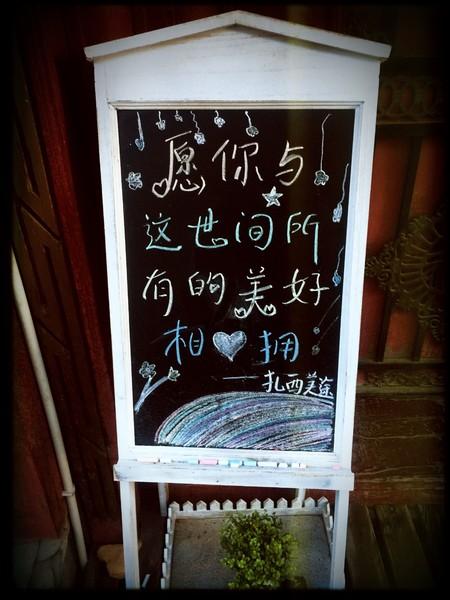 愿你与
这世间所
有的美好
相拥
——扎西美途